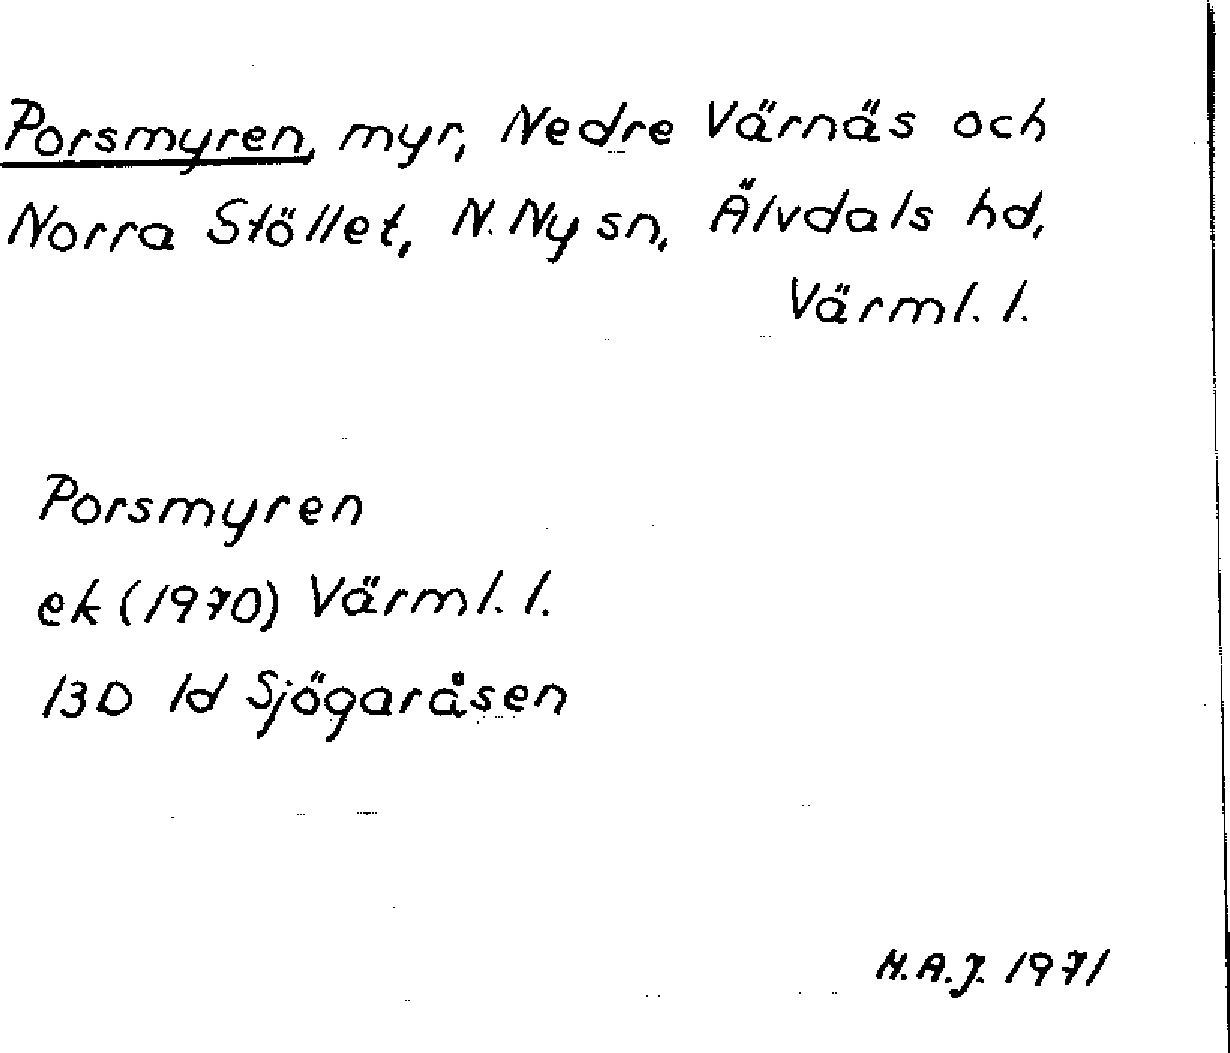 Porsmyren, myr, Nedre Värnäs och
Norra Stöllet, N. Ny sn, Älvdals hd,
Värml. l.
Porsmyren
ek (1970) Värml. l.
13D 1d Sjögaråsen
H.A.J. 1971